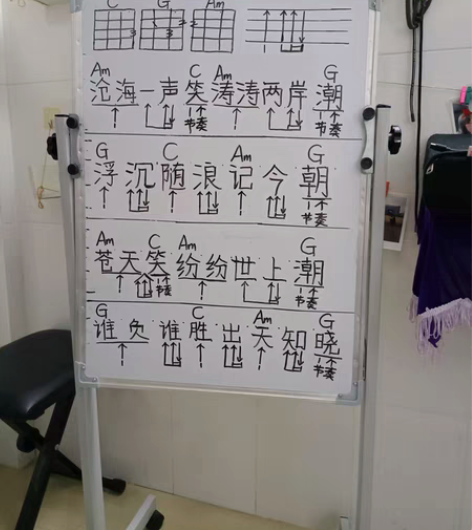 C G Am
Am C Am G
沧海一声笑涛涛两岸潮
节奏 节奏
G C Am G
浮沉随浪记今朝
节奏
Am C Am G
苍天笑纷纷世上潮
节奏 节奏
G C Am G
谁负谁胜出天知晓
节奏